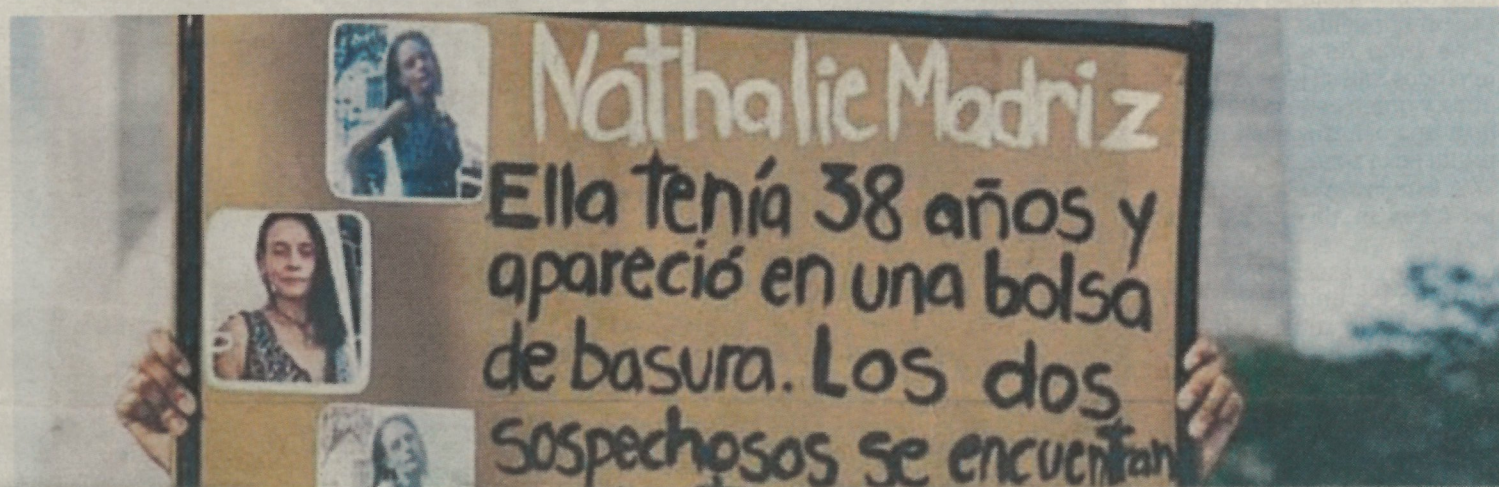 Nathalie Madriz
Ella tenía 38 años y
apareció en una bolsa
de basura. Los dos
sospechosos se encuentran